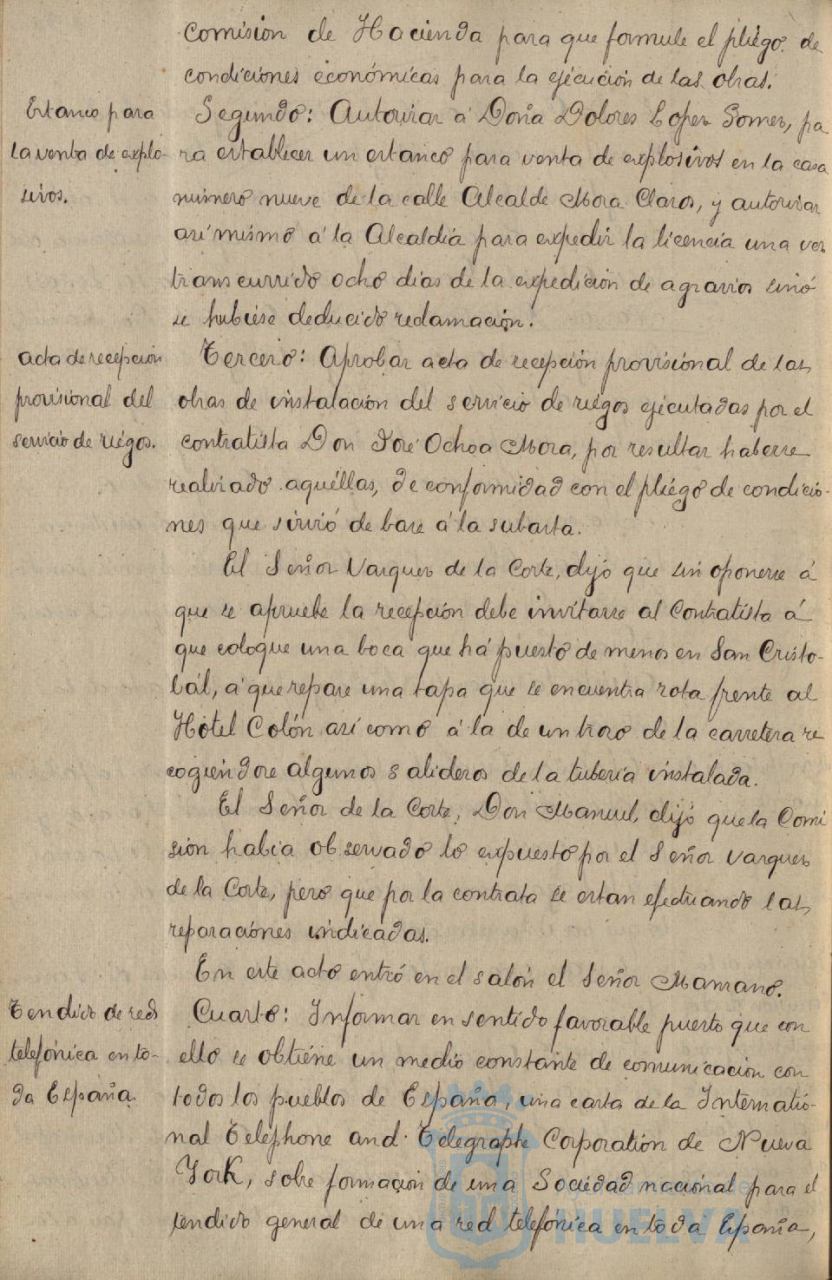 Comisión de Hacienda para que formule el pliego de
condiciones económicas para la ejecución de las obras.
Estanco para
la venta de explo-
sivos.
Segundo: Autorizar á Doña Dolores Lopez Gomez, pa
ra establecer un estanco para venta de explosivos en la casa
número nueve de la calle Alcalde Mora Claros, y autorizar
asímismo á la Alcaldía para expedir la licencia una vez
transcurrido ocho dias de la expedición de agravios sinó
se hubiese deducido reclamación.
acta de recepción
provisional del
servicio de riegos.
Tercero: Aprobar acta de recepción provisional de las
obras de instalación del servicio de riegos ejecutadas por el
contratista Don José Ochoa Mora, por resultar haberse
realizado aquéllas, de conformidad con el pliego de condicio-
nes que sirvió de base á la subasta.
El Señor Vazquez de la Corte, dijo que sin oponerse á
que se apruebe la recepción debe invitarse al Contratista á
que coloque una boca que há puesto de menos en San Cristo-
bál, á que repare una tapa que se encuentra rota frente al
Hotel Colón así como á la de un trozo de la carretera re
cogiendose algunos salideros de la tubería instalada.
El Señor de la Corte, Don Manuel, dijó que la Comi
sión habia observado lo expuesto por el Señor Vazquez
de la Corte, pero que por la contrata se estan efectuando las
reparaciones indicadas.
En este acto entró en el salón el Señor Manzano.
Tendido de red
telefónica en to-
da España.
Cuarto: Informar en sentido favorable puesto que con
ello se obtiene un medio constante de comunicación con
todos los pueblos de España, una carta de la Internatio-
nal Telephone and Telegraphe Corporation de Nueva
York, sobre formación de una Sociedad nacional para el
tendido general de una red telefónica en toda España,
HUELVA